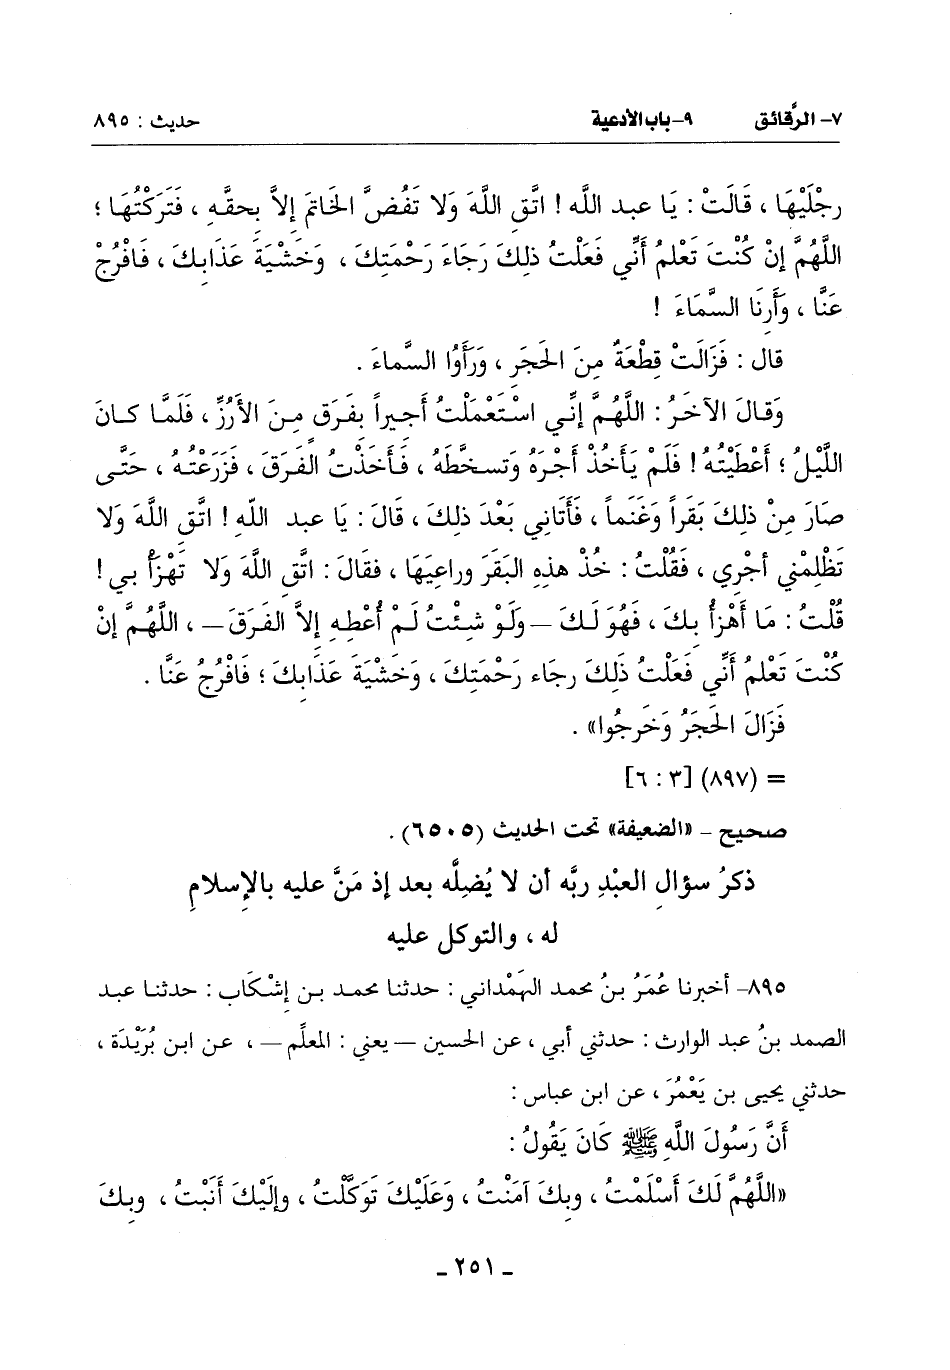 ٧- الرَّقائق ٩- باب الأدعية حديث : ٨٩٥
رِجْلَيْهَا ، قَالَتْ : يَا عبد الله ! اتَّقِ اللَّهَ وَلا تَفُضَّ الخَاتَمَ إلاَّ بِحقِّه ، فَتَرَكْتُهَا ؛
اللَّهُمَّ إنْ كُنْتَ تَعْلَمُ أَنِّي فَعَلْتُ ذلِكَ رَجَاءَ رَحْمَتِكَ ، وَخَشْيَةَ عَذَابِكَ ، فَافْرُجْ
عَنَّا ، وَأَرِنَا السَّمَاءَ !
قال : فَزَالَتْ قِطْعَةٌ مِنَ الحَجَرِ ، وَرَأَوُا السَّماءَ .
وَقالَ الآخَرُ : اللَّهُمَّ إنِّي اسْتَعْمَلْتُ أجيراً بِفَرَقٍ مِنَ الأَرُزِّ ، فَلَمَّا كانَ
اللَّيْلُ ؛ أَعْطَيْتُهُ ! فَلَمْ يَأْخُذْ أَجْرَهُ وَتسخَّطَهُ ، فَأَخَذْتُ الفَرَقَ ، فَزَرَعْتُهُ ، حَتَّى
صَارَ مِنْ ذلِكَ بَقَراً وَغَنَماً ، فَأَتَاني بَعْدَ ذلِكَ ، قَالَ : يَا عبد اللّه ! اتَّقِ اللَّهَ وَلا
تَظْلِمْني أجْرِي ، فَقُلْتُ : خُذْ هذِهِ البَقَرَ وراعِيَهَا ، فقَالَ : اتَّقِ اللَّهَ وَلا تَهْزَأْ بي !
قُلْتُ : مَا أَهْزأُ بِكَ ، فَهُوَ لَكَ – وَلَوْ شِئْتُ لَمْ أُعْطِهِ إلاَّ الفَرَقَ – ، اللَّهُمَّ إنْ
كُنْتَ تَعْلَمُ أَنِّي فَعَلْتُ ذَلِكَ رجَاء رَحْمَتِكَ ، وَخَشْيَةَ عَذَابِكَ ؛ فَافْرُجْ عَنَّا .
فَزَالَ الحَجَرُ وَخَرجُوا» .
= (٨٩٧) [٣ : ٦]
صحيح – «الضعيفة» تحت الحديث (٦٥٠٥) .
ذكرُ سؤالِ العبْدِ ربَّه أن لا يُضِلَّه بعد إذ مَنَّ عليه بالإسلامِ
له ، والتوكل عليه
٨٩٥- أخبرنا عُمَرُ بنُ محمد الهَمْداني : حدثنا محمد بن إِشْكَاب : حدثنا عبد
الصمد بنُ عبد الوارث : حدثني أبي ، عن الحسين – يعني : المعلِّم – ، عن ابن بُرَيْدَة ،
حدثني يحيى بن يَعْمُرَ ، عن ابن عباس :
أَنَّ رَسُولَ اللَّهِ ﷺ كَانَ يَقُولُ :
«اللَّهُمَّ لَكَ أَسْلَمْتُ ، وبِكَ آمَنْتُ ، وَعَلَيْكَ تَوَكَّلْتُ ، وإِلَيْكَ أَنَبْتُ ، وبِكَ
- ٢٥١ -